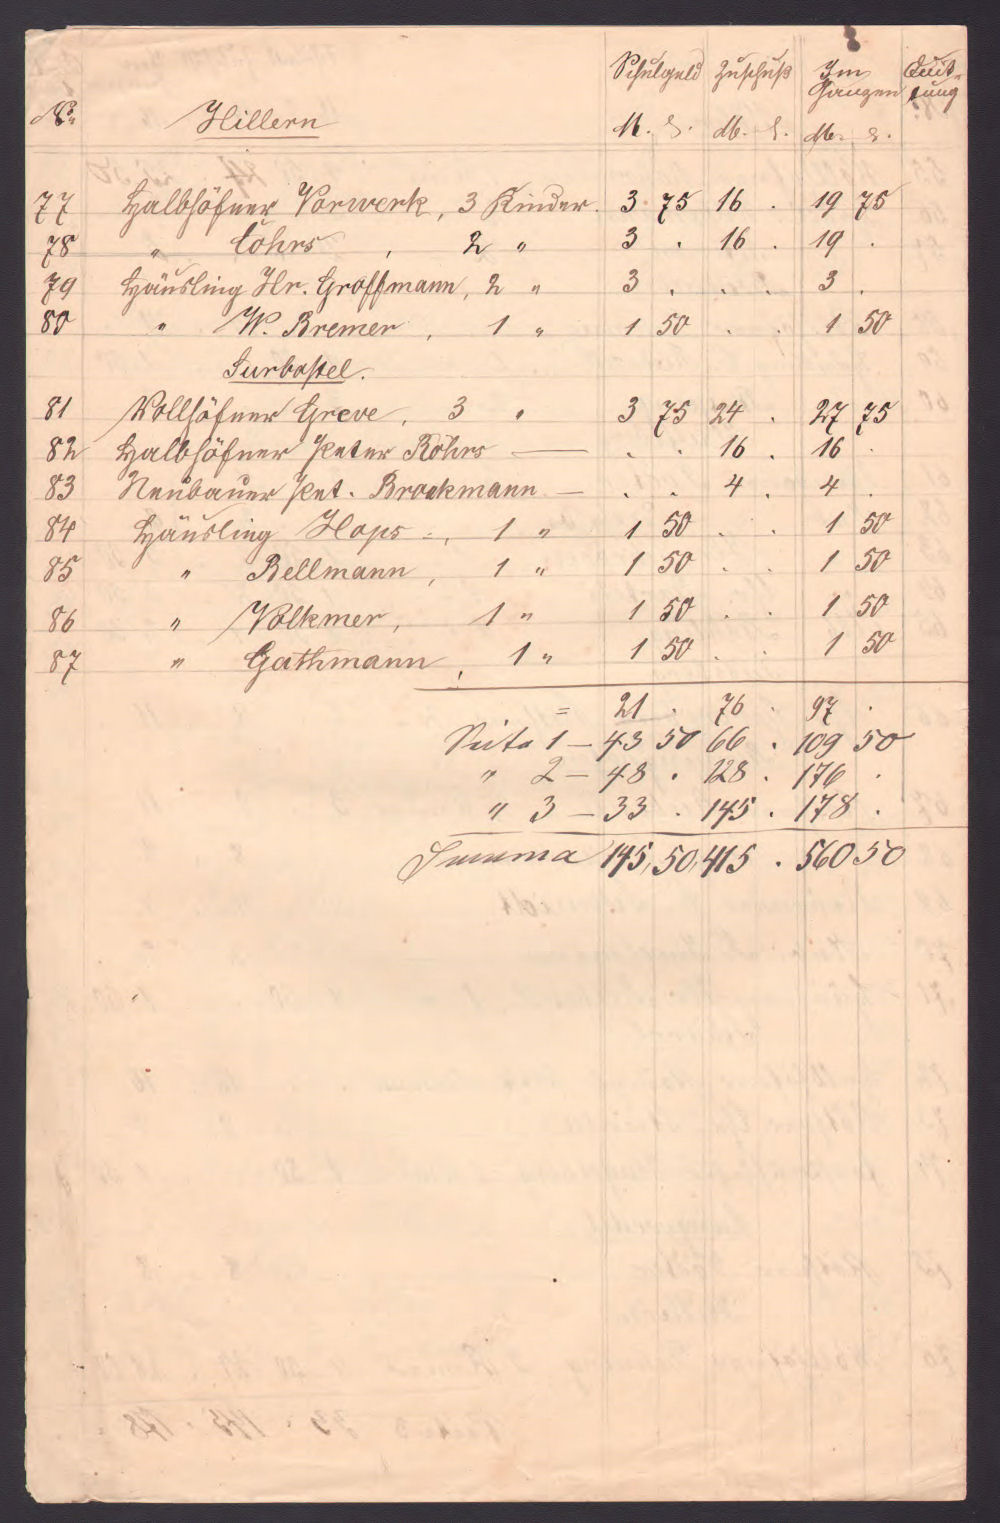 Schulgeld Zuschuß Im Ganzen Quit-tung
No. Hillern M. S. M. S. M. S.
77 Halbhöfner Vorwerk, 3 Kinder. 3 75 16 . 19 75
78 " Cohrs, 2 " 3 . 16 . 19 .
79 Häusling Hr. Groffmann, 2 " 3 . . . 3 .
80 " W. Bremer, 1 " 1 50 . . 1 50
Surbostel.
81 Vollhöfner Greve, 3 " 3 75 24 . 27 75
82 Halbhöfner Peter Röhrs — . . 16 . 16 .
83 Neubauer Pet. Brockmann — . . 4 . 4 .
84 Häusling Hops, 1 " 1 50 . . 1 50
85 " Bellmann, 1 " 1 50 . . 1 50
86 " Volkmer, 1 " 1 50 . . 1 50
87 " Gathmann, 1 " 1 50 . . 1 50
= 21 . 76 . 97 .
Seite 1 – 43 50 66 . 109 50
" 2 – 48 . 128 . 176 .
" 3 – 33 . 145 . 178 .
Summa 145,50,415 . 560 50